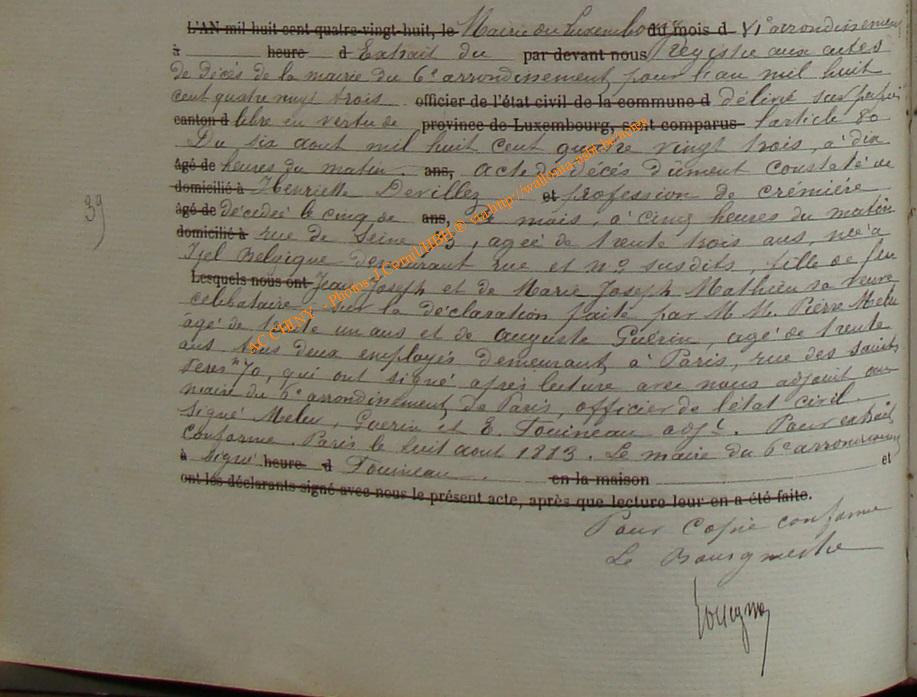 L'AN mil huit cent quatre-vingt-huit, le Mairie du Luxembourg du mois d VIe arrondissement
à heure d Extrait du par devant nous registre aux actes
de Décés de la mairie du 6e arrondissement, pour l'an mil huit
cent quatre vingt trois officier de l'état civil de la commune d délivré sur papier
canton d libre en vertu de province de Luxembourg, sont comparus l'article 80
Du six aout mil huit cent quatre vingt trois, à dix
âgé de heures du matin. ans, acte de décés dûment constaté de
domicilié à Henriette Devillez et profession de crémière
âgé de décedeé le cinq de ans, ce mois, à cinq heures du matin
domicilié à rue de Seine 73, ageé de trente trois ans, neé à
Izel Belgique demeurant rue et no susdits, fille de feu
Lesquels nous ont Jean Joseph et de Marie Joseph Mathieu sa veuve
celibataire sur la déclaration faite par M.M. Pierre Meleu
âgé de trente un ans et de Auguste Guérin, agé de trente
ans tous deux employés demeurant à Paris, rue des saints
peres no 70, qui ont signé après lecture avec nous adjoint au
maire du 6e arrondissement de Paris, officier de l'état civil.
signé Meleu, Guerin et E. Fouineau adjt. Pour extrait
conforme. Paris le huit aout 1883. Le maire du 6e arrondissement
à signé heure d Fouineau. en la maison et
ont les déclarants signé avec nous le présent acte, après que lecture leur en a été faite.
39
Pour Copie conforme
Le Bourgmestre
AC CHINY - Photos J.Cornil,HBH @ via http://wallonia-asbl.be/acles